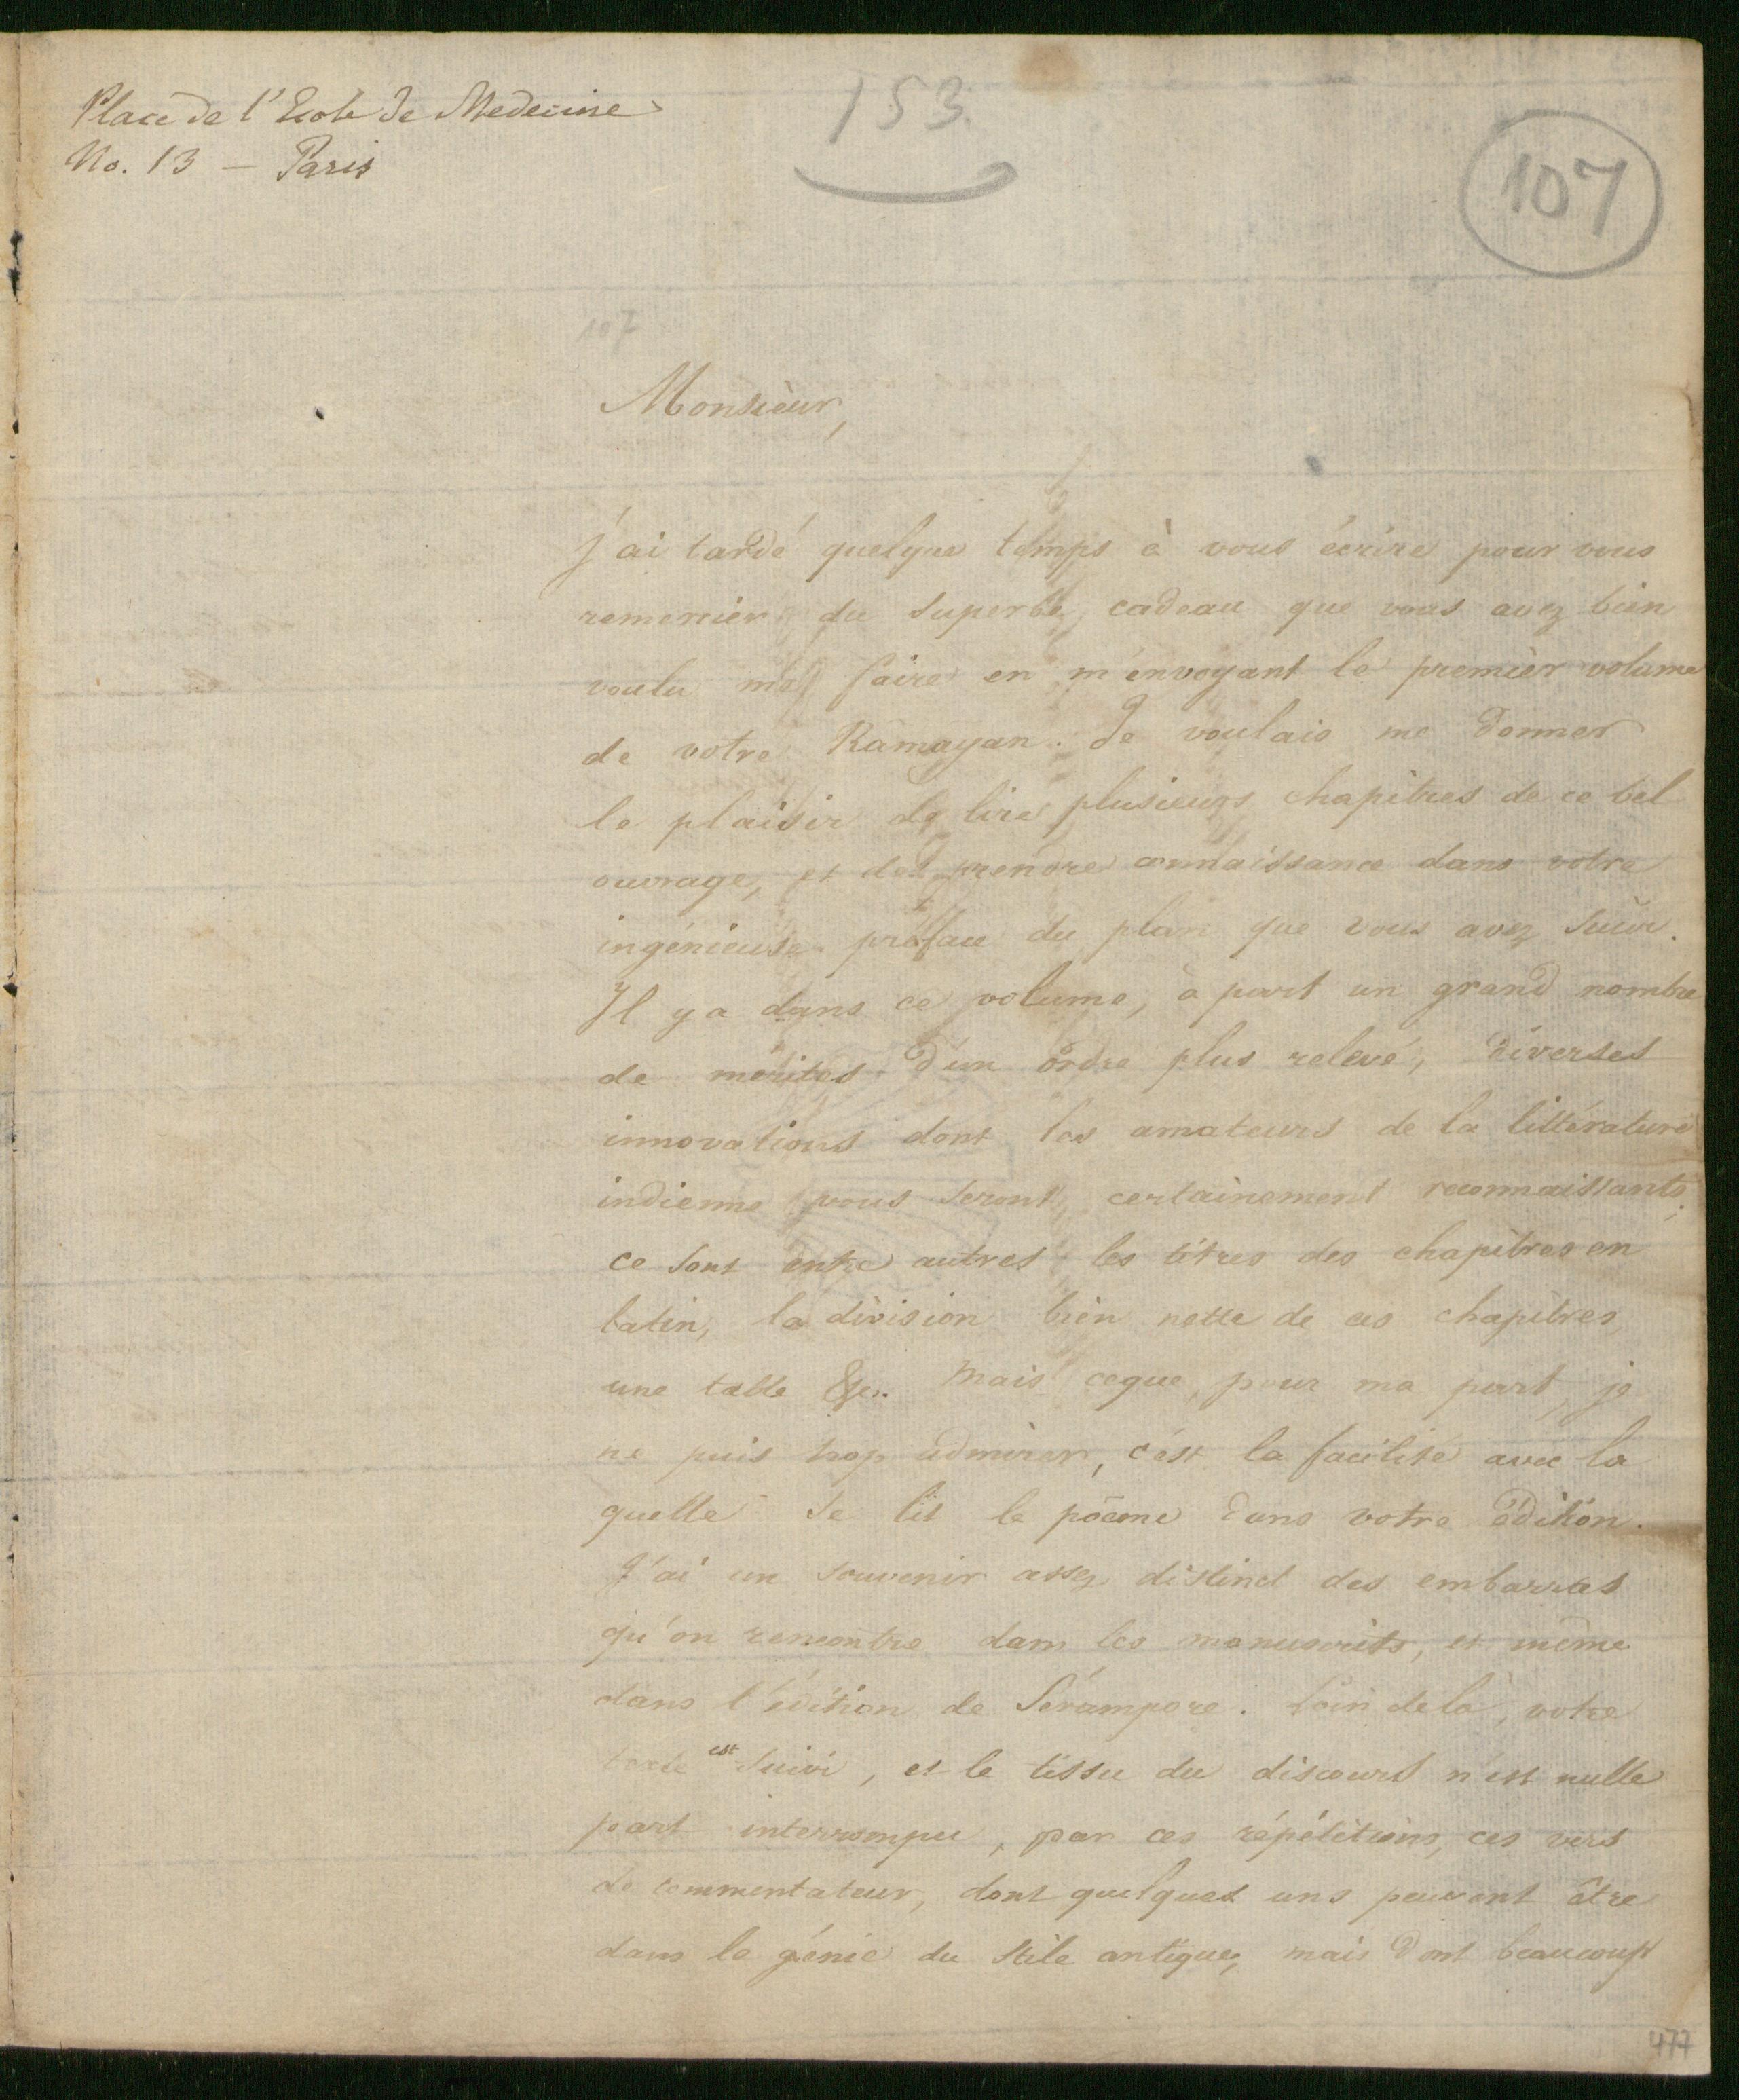 Place de l'Ecole de Medecine
No. 13 — Paris
153.
107
107
Monsieur,
j'ai tardé quelque temps à vous écrire pour vous
remercier du superbe cadeau que vous avez bien
voulu me faire en m'envoyant le premier volume
de votre Râmayan. Je voulais me donner
le plaisir de lire plusieurs chapitres de ce bel
ouvrage, et de prendre connaissance dans votre
ingénieuse préface du plan que vous avez suivi.
Il y a dans ce volume, à part un grand nombre
de mérites d'un ordre plus relevé, diverses
innovations dont les amateurs de la littérature
indienne vous seront certainement reconnaissants;
ce sont entre autres les titres des chapitres en
latin, la division bien nette de ces chapitres,
une table &c. Mais ceque, pour ma part, je
ne puis trop admirer, c'est la facilité avec la
quelle se lit le poëme dans votre édition.
J'ai un souvenir assez distinct des embarras
qu'on rencontre dans les manuscrits, et même
dans l'édition de Sérampore. Loin delà, votre
texte est suivi, et le tissu du discours n'est nulle
part interrompu, par ces répétitions, ces vers
de commentateur, dont quelques uns peuvent être
dans le génie du stile antique, mais dont beaucoup
477